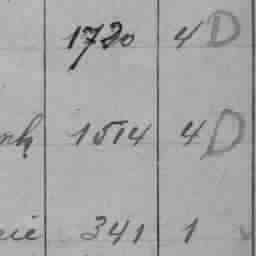 1720 4 D
1514 4 D
341 1